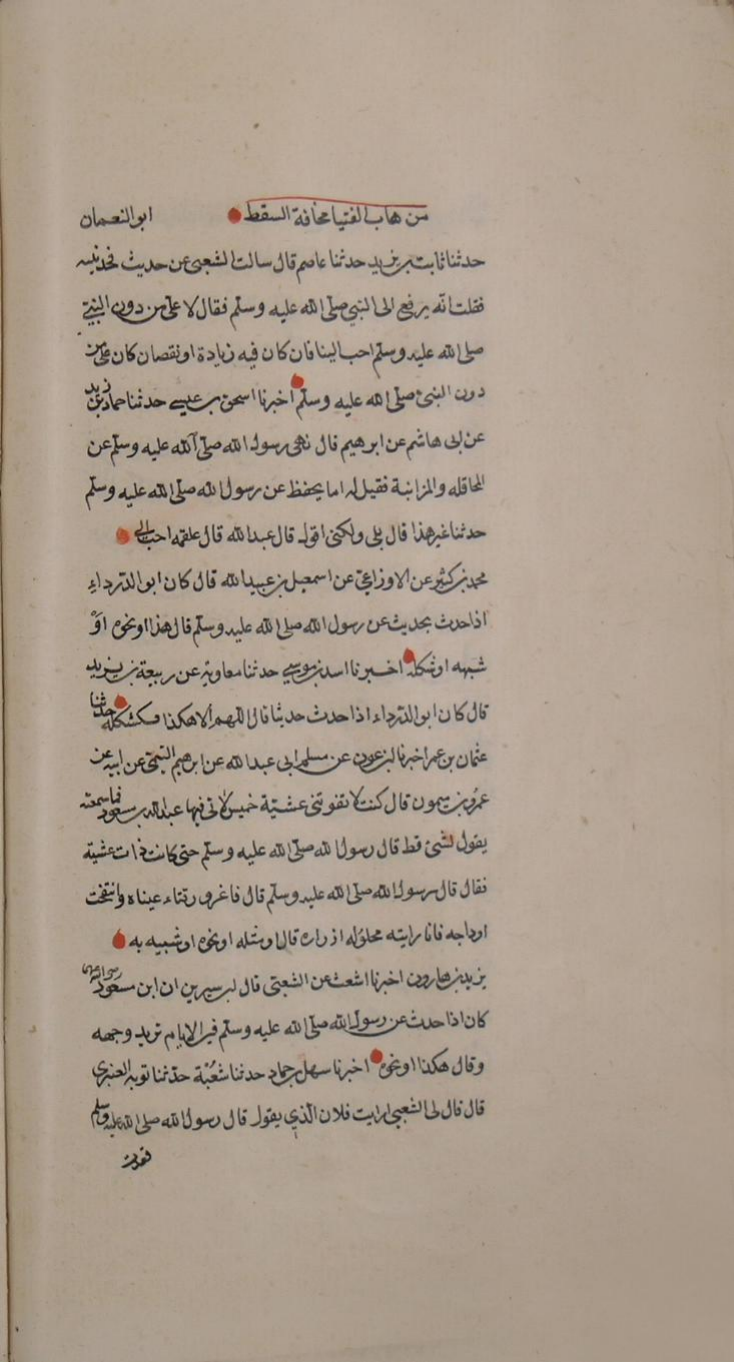 من هاب الفتيا مخافة السقط ابو النعمان
حدثنا ثابت بن يزيد حدثنا عاصم قال سالت الشعبى عن حديث فحدثنيه
فقلت انه يرفع الى النبي صلى الله عليه وسلم فقال لا على من دون النبي
صلى الله عليه وسلم احب الينا فان كان فيه زيادة او نقصان كان على من
دون النبي صلى الله عليه وسلم اخبرنا اسحق بن عيسى حدثنا حماد بن زيد
عن ابى هاشم عن ابرهيم قال نهى رسول الله صلى الله عليه وسلم عن
المحاقله والمزابنة فقيل له اما يحفظ عن رسول الله صلى الله عليه وسلم
حدثنا غير هذا قال بلى ولكنى اقول قال عبد الله قال علقمه احب الى
محمد بن كثير عن الاوزاعي عن اسمعيل بن عبيد الله قال كان ابو الدرداء
اذا حدث بحديث عن رسول الله صلى الله عليه وسلم قال هذا او نحوه او
شبهه او شكله اخبرنا اسد بن موسى حدثنا معاوية عن ربيعة بن يزيد
قال كان ابو الدرداء اذا حدث حديثا قال اللهم الا هكذا فكشكله حدثنا
عثمان بن عمر اخبرنا ابن عون عن مسلم ابى عبد الله عن ابرهيم التيمى عن ابيه عن
عمرو بن ميمون قال كنت لا تفوتنى عشية خميس الا اتى فيها عبد الله بن مسعود فما سمعته
يقول لشئ قط قال رسول الله صلى الله عليه وسلم حتى كانت ذات عشية
فقال قال رسول الله صلى الله عليه وسلم قال فاغرورقتا عيناه وانتفخت
اوداجه فانا رايته محلوله ازراره قال او مثله او نحوه او شبيه به
يزيد بن هارون اخبرنا اشعث عن الشعبى قال ابن سيرين ان ابن مسعود رضي الله عنه
كان اذا حدث عن رسول الله صلى الله عليه وسلم في الايام تربد وجهه
وقال هكذا او نحوه اخبرنا سهل بن حماد حدثنا شعبة حدثنا توبه العنبرى
قال قال لى الشعبى ارايت فلان الذي يقول قال رسول الله صلى الله عليه وسلم